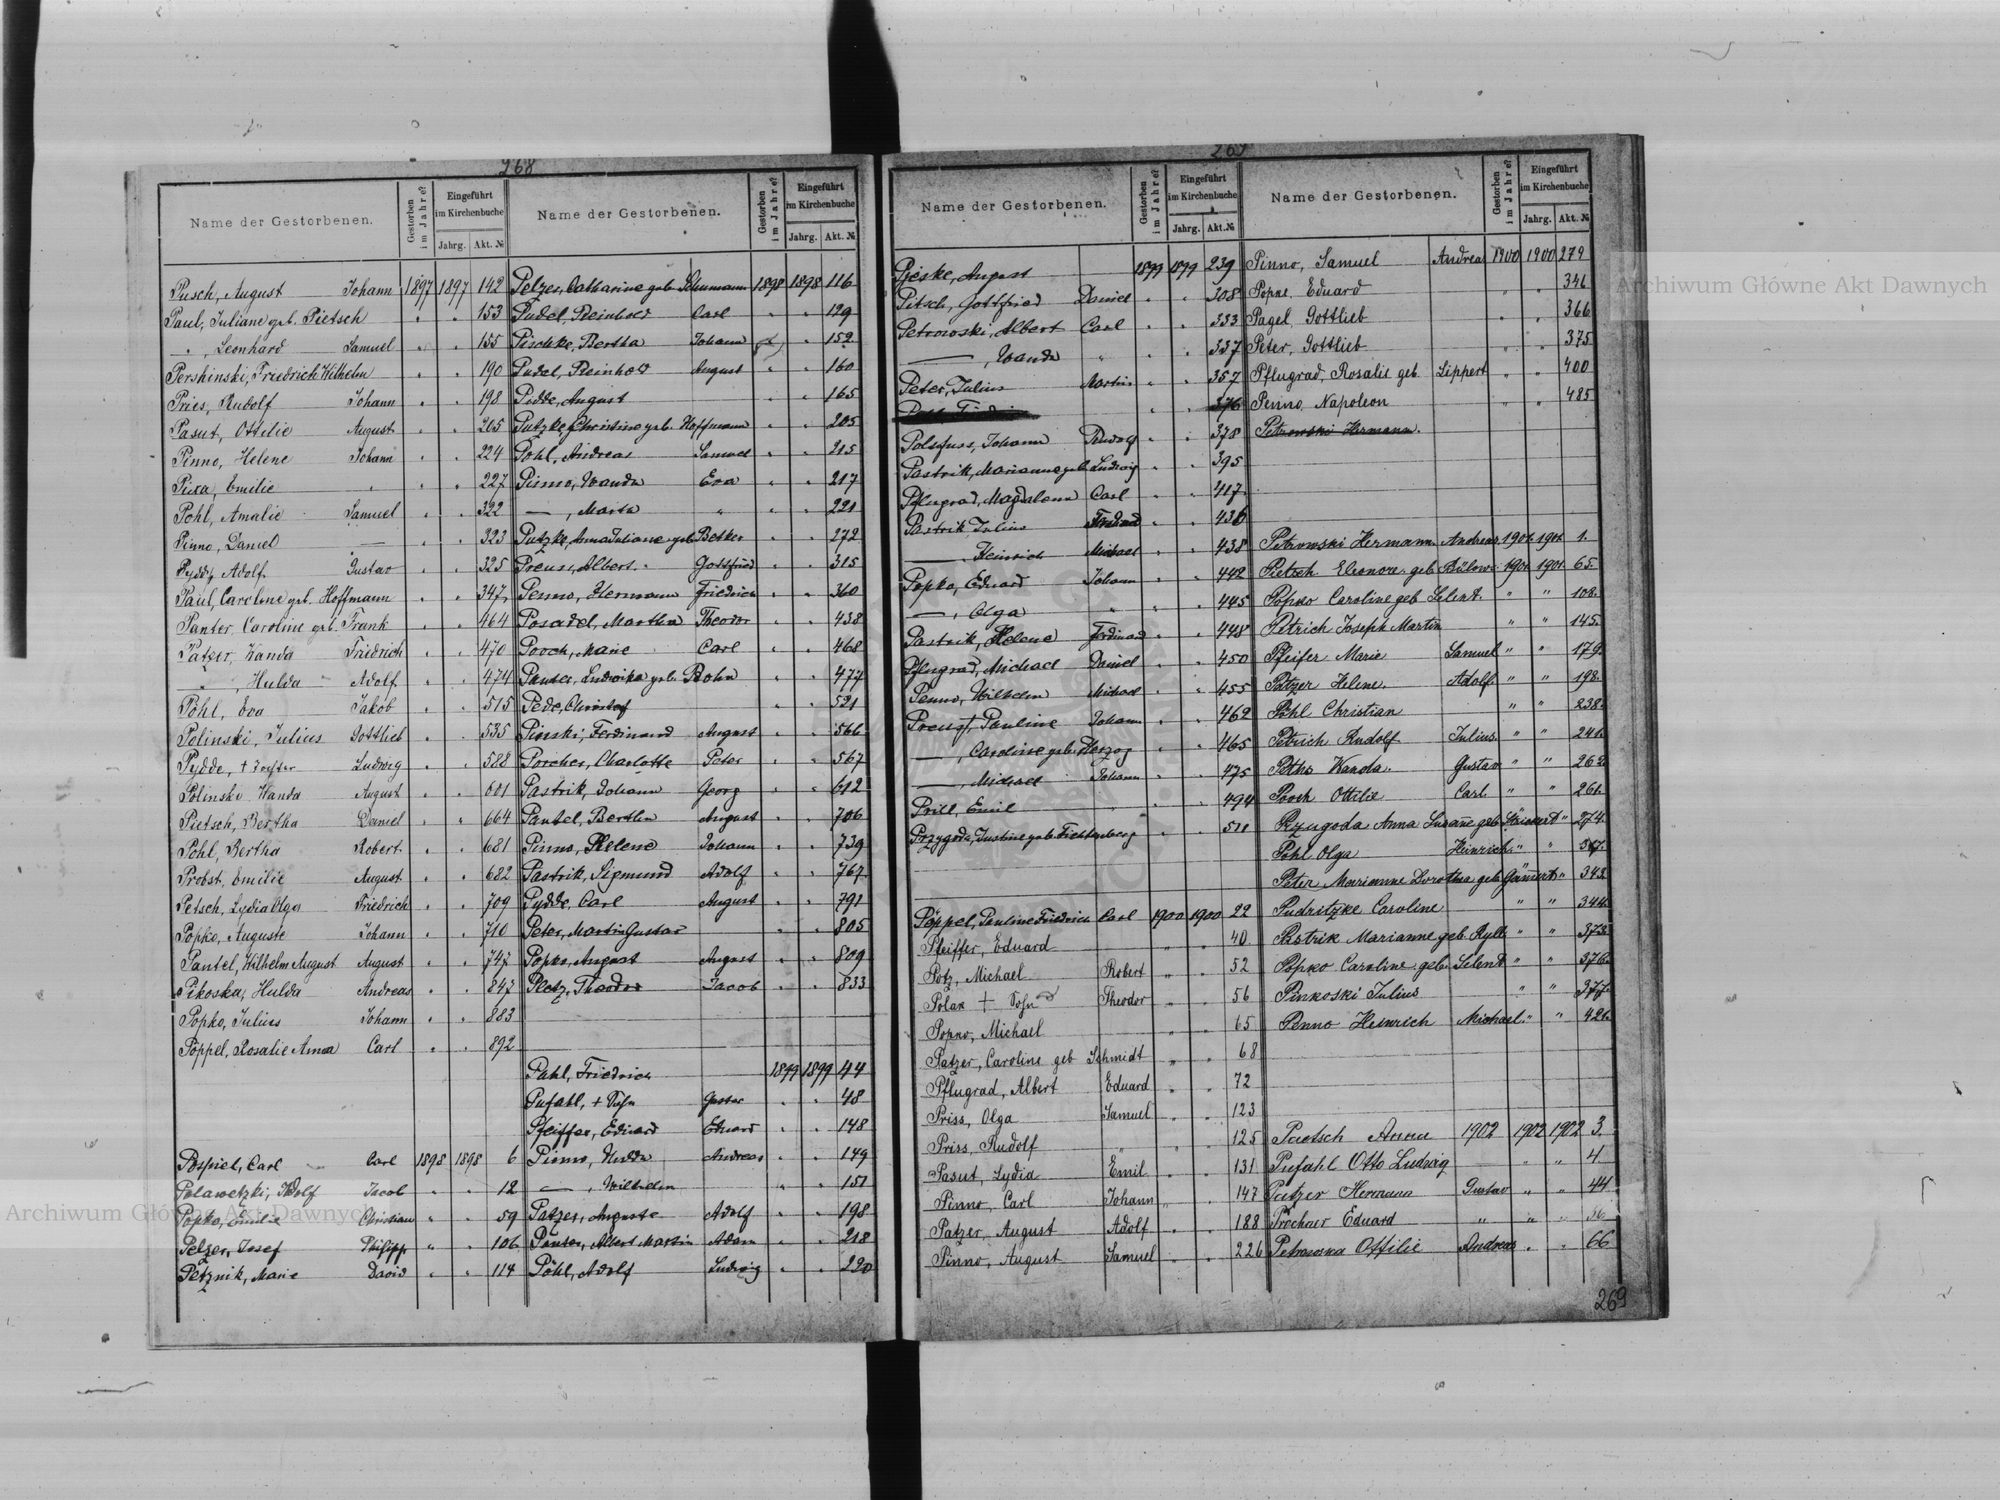 268
Name der Gestorbenen. Gestorben im Jahre? Eingeführt im Kirchenbuche Jahrg. Akt. №
Pusch, August Johann 1897 1897 142
Paul, Juliane geb. Pietsch " " 153
" , Leonhard Samuel " " 155
Pershinski, Friedrich Wilhelm " " 190
Pries, Rudolf Johann " " 198
Pasut, Ottilie August " " 205
Pinno, Helene Johann " " 224
Pixa, Emilie " " " 227
Pohl, Amalie Samuel " " 322
Pinno, Daniel — " " 323
Pydde, Adolf Gustav " " 325
Paul, Caroline geb. Hoffmann " " 347
Panter, Caroline geb. Frank " " 464
Patzer, Wanda Friedrich " " 470
" , Hulda Adolf " " 474
Pohl, Eva Jakob " " 515
Polinski, Julius Gottlieb " " 535
Pydde, + Tochter Ludwig " " 588
Polinski Wanda August " " 601
Pietsch, Bertha Daniel " " 664
Pohl, Bertha Robert " " 681
Probst, Emilie August " " 682
Petsch, Lydia Olga Friedrich " " 709
Popko, Auguste Johann " " 710
Pantel, Wilhelm August August " " 747
Pikoska, Hulda Andreas " " 847
Popko, Julius Johann " " 883
Pöppel, Rosalie Anna Carl " " 892
Pospiel, Carl Carl 1898 1898 6
Polawetzki, Adolf Jacob " " 12
Popko, Emilie Christian " " 59
Pelzer, Josef Philipp " " 106
Petznik, Marie David " " 114
Name der Gestorbenen. Gestorben im Jahre? Eingeführt im Kirchenbuche Jahrg. Akt. №
Pelzer, Catharine geb. Schumann 1898 1898 116
Pudel, Reinhold Carl " " 129
Pischke, Bertha Johann " " 152
Pudel, Reinhold August " " 160
Pidde, August " " 165
Putzke, Christine geb. Hoffmann " " 205
Pohl, Andreas Samuel " " 215
Pinno, Wanda Eva " " 217
— , Marta " " " 221
Putzke, Anna Juliane geb. Betker " " 272
Preuss, Albert Gottfried " " 315
Penno, Hermann Friedrich " " 360
Posadel, Martha Theodor " " 438
Pooch, Marie Carl " " 468
Panter, Ludwika geb. Bohn " " 477
Pede, Christof " " 521
Pinski, Ferdinand August " " 566
Porcher, Charlotte Peter " " 567
Pastrik, Johann Georg " " 612
Pantel, Bertha August " " 706
Pinno, Helene Johann " " 739
Pastrik, Sigmund Adolf " " 767
Pydde, Carl August " " 791
Peter, Martin Gustav " " 805
Popko, August August " " 809
Pletz, Theodor Jacob " " 833
Pahl, Friedrich 1899 1899 44
Pufahl, + Sohn Gustav " " 48
Pfeiffer, Eduard Eduard " " 148
Pinno, Hulda Andreas " " 149
— , Wilhelm " " 151
Patzer, Auguste Adolf " " 198
Panter, Albert Martin Adam " " 218
Pöhl, Adolf Ludwig " " 220
269
Name der Gestorbenen. Gestorben im Jahre? Eingeführt im Kirchenbuche Jahrg. Akt. №
Pjeske, August 1899 1899 239
Pitsch, Gottfried Daniel " " 308
Petrowski, Albert Carl " " 333
— , Wanda " " " 337
Peter, Julius Martin " " 357
" " 376
Polsfuss, Johann Rudolf " " 378
Pastrik, Marianne geb. Ludwig " " 395
Pflugrad, Magdalena Carl " " 417
Pastrik Julius Ferdinand " " 436
— , Heinrich Michael " " 438
Popko, Eduard Johann " " 442
— , Olga " " " 445
Pastrik, Helene Ferdinand " " 448
Pflugrad, Michael Daniel " " 450
Penno, Wilhelm Michael " " 455
Preuss, Pauline Johann " " 462
— , Caroline geb. Herzog " " 465
— , Michael Johann " " 475
Prill, Emil " " 494
Przygoda, Justine geb. Fichtenberg " " 511
Pöppel, Pauline Friedrich Carl 1900 1900 22
Pfeiffer, Eduard " " 40
Potz, Michael Robert " " 52
Polax + Sohn Theodor " " 56
Popno, Michael " " 65
Patzer, Caroline geb Schmidt " " 68
Pflugrad, Albert Eduard " " 72
Priss, Olga Samuel " " 123
Priss, Rudolf " " " 125
Pasut, Lydia Emil " " 131
Pinno, Carl Johann " " 147
Patzer, August Adolf " " 188
Pinno, August Samuel " " 226
Name der Gestorbenen. Gestorben im Jahre? Eingeführt im Kirchenbuche Jahrg. Akt. №
Pinno, Samuel Andreas 1900 1900 279
Popne, Eduard " " 346
Pagel, Gottlieb " " 366
Peter, Gottlieb " " 375
Pflugrad, Rosalie geb. Lippert " " 400
Penno, Napoleon " " 485
Petrowski Hermann.
Petrowski Hermann Andreas 1901. 1901. 1.
Pietsch Eleonore geb Bülow 1901. 1901. 65.
Popko Caroline geb Selent. " " 108.
Petrich Joseph Martin " " 145.
Pfeifer Marie Samuel " " 179.
Patzer Helene. Adolf. " " 198.
Pöhl Christian " " 238.
Petrich Rudolf Julius. " " 241.
Peths Wanda. Gustav " " 262.
Pooch Ottilie Carl. " " 261.
Pzugoda Anna Susanne geb. " 274.
Pohl Olga Heinrich. " "
Peter Marianne Dorothea geb " 342.
Pudritzke Caroline " " 344.
Pastrik Marianne geb. Rylk " " 373.
Popko Caroline geb. Selent " " 376.
Pinkoski Julius " " 377.
Penno Heinrich Michael. " " 421.
Paetsch Anna 1902 1902 1902 3.
Pufahl Otto Ludwig " " 4
Patzer Hermann Gustav " " 44
Prochner Eduard " " " 56
Petrowska Ottilie Andreas " " 66
269
Archiwum Główne Akt Dawnych
Archiwum Główne Akt Dawnych